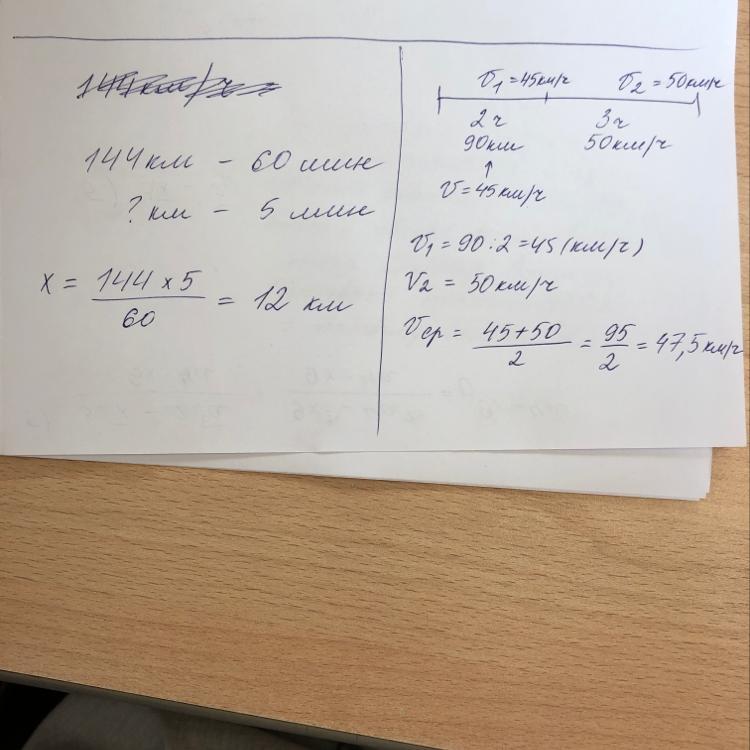 144 км/ч
144 км - 60 мин
? км - 5 мин
x = 144 x 5 / 60 = 12 км
V1 = 45 км/ч V2 = 50 км/ч
2 ч 3 ч
90 км 50 км/ч
↑
V = 45 км/ч
V1 = 90 : 2 = 45 (км/ч)
V2 = 50 км/ч
Vср = 45+50 / 2 = 95 / 2 = 47,5 км/ч